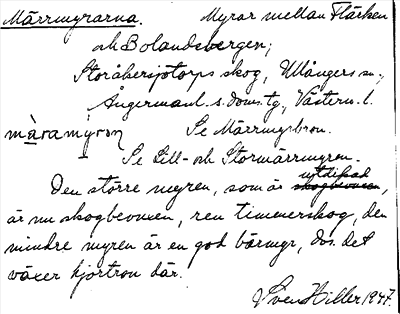 Märrmyrarna. Myrar mellan Flärken
och Bolandsbergen;
Storåkersjötorps skog, Ullångers sn.,
Ångermanl. s. doms. tg., Västern. l.
màramýroṇ Se Märrmyrbron.
Se Lill- och Stormärrmyren.
Den större myren, som är utdikad
är nu skogbevuxen, ren timmerskog, den
mindre myren är en god bärmyr, dvs. det
växer hjortron där.
Sven Hiller 1947.